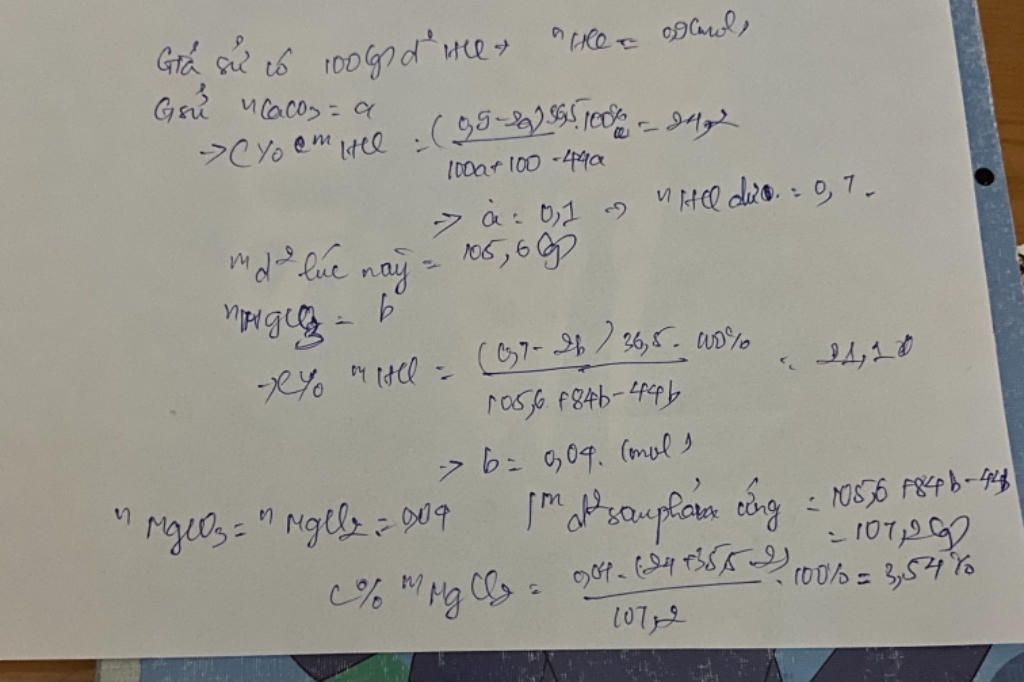 Giả sử có 100(g) d² HCl → nHCl = 0,9(mol)
Gsử nCaCO3 = a
→ C% m HCl = (0,9-2a)36,5.100% / 100a+100-44a = 24,2
→ a = 0,1 → nHCl dư = 0,7.
m d² lúc này = 105,6(g)
nMgCO3 = b
→ C% m HCl = (0,7-2b)36,5.100% / 105,6+84b-44b = 21,1
→ b = 0,04. (mol)
nMgCO3 = nMgCl2 = 0,04 m d² sau phản ứng = 105,6+84b-44b
= 107,2(g)
C% m MgCl2 = 0,04.(24+35,5.2) / 107,2 . 100% = 3,54%